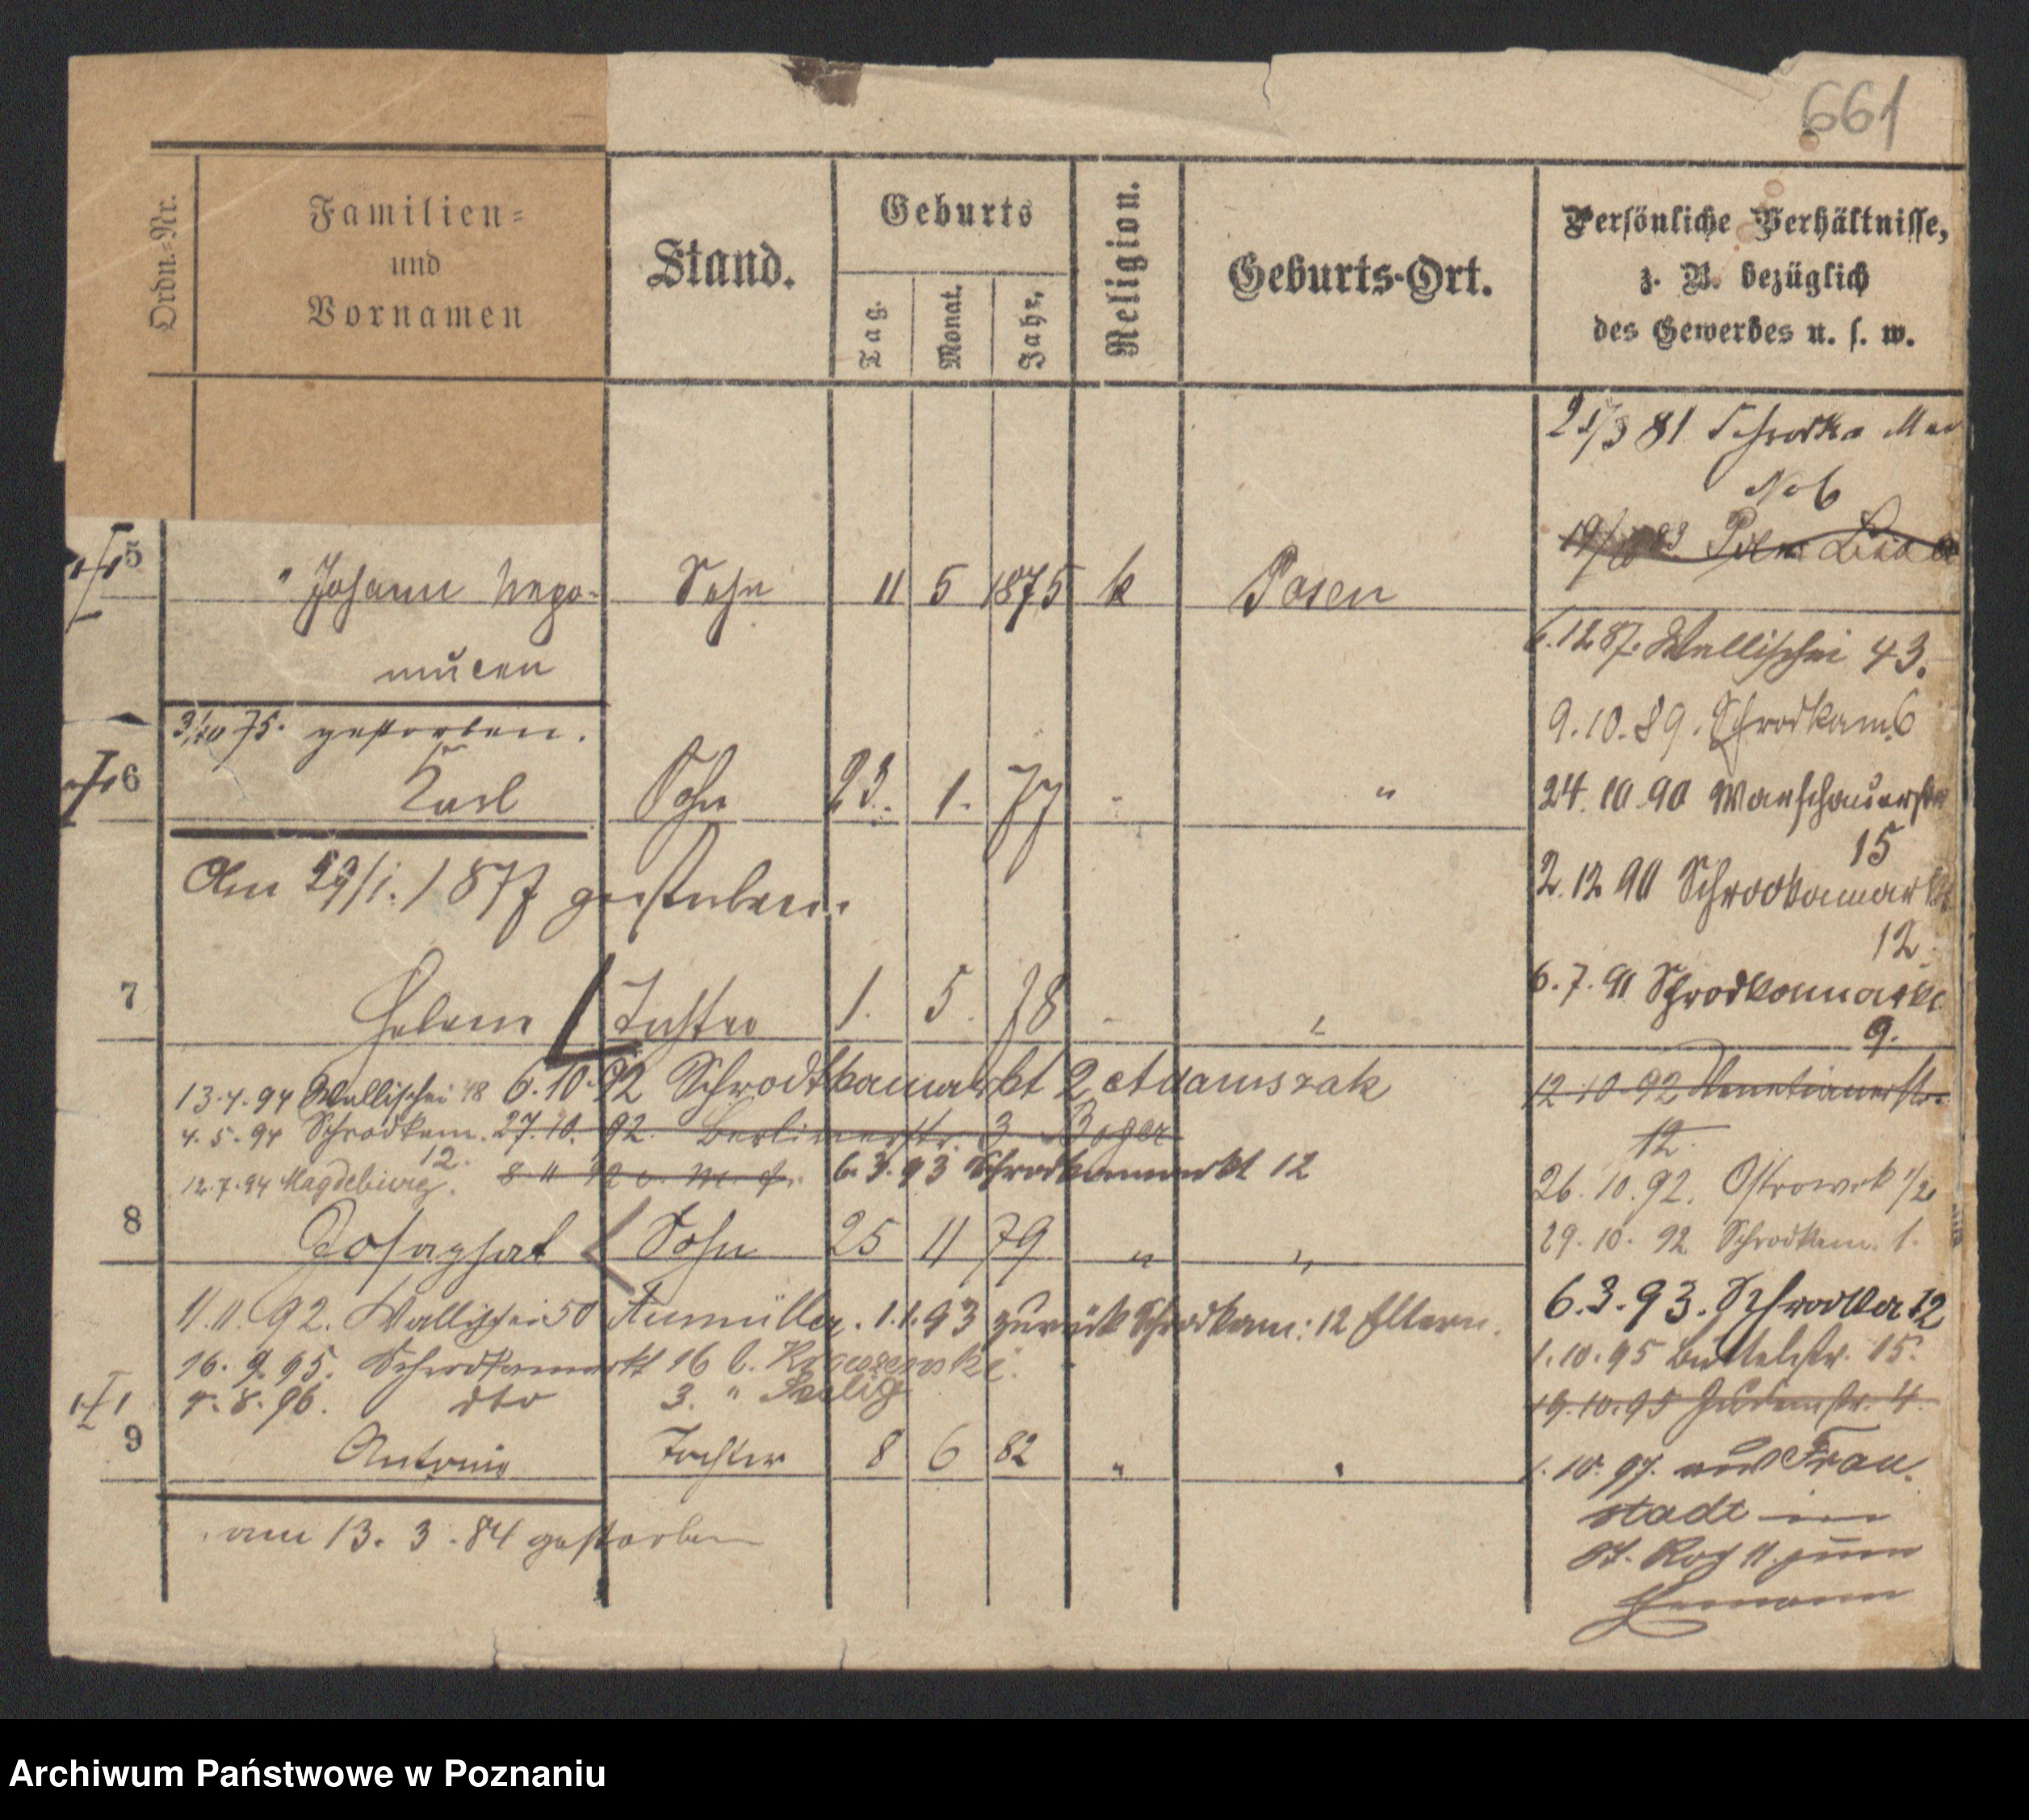 661
Ordn.-Nr.
Familien-
und
Vornamen
Stand.
Geburts
Tag.
Monat.
Jahr.
Religion.
Geburts-Ort.
Persönliche Verhältnisse,
z. B. bezüglich
des Gewerbes u. s. w.
81 Schrodka
No 6
5 " Johann Nepo- Sohn 11 5 1875 k Posen
mucen
6.12 87. Wallischei 43.
75. gestorben.
9.10.89. Schrodkam. 6
6 Karl Sohn 23. 1. 77 " "
24.10.90 Warschauerstr
15
Am 29/1. 1877 gestorben.
2.12 90 Schrodkamarkt
12.
7 Helene Tochter 1. 5. 78 " "
6.7.91 Schrodkamarkt
9.
6.10.92 Schrodkamarkt 2 Adamszak
13.4.94 Wallischei 48
12.10.92 Venetianerstr.
12.
4.5.94 Schrodkam. 12.
27.10.92. Berlinerstr. 3 Boger
12.7.94 Magdeburg.
6.3.93 Schrodkamarkt 12
26.10.92. Ostrowek 1/2.
8 Josaphat Sohn 25 11 79 " "
29.10.92 Schrodkam. 1.
11.11.92. Wallischei 50 Aumüller. 1.1.93 zurück Schrodkam: 12 Eltern.
6.3.93. Schrodka 12
16.9.95. Schrodkamarkt 16 b.
1.10.95 Büttelstr. 15.
8.96. dto 3. "
19.10.95 4.
9 Antonie Tochter 8 6 82 " "
1.10.97. Frau-
stadt
am 13.3.84 gestorben
Hermann
Archiwum Państwowe w Poznaniu